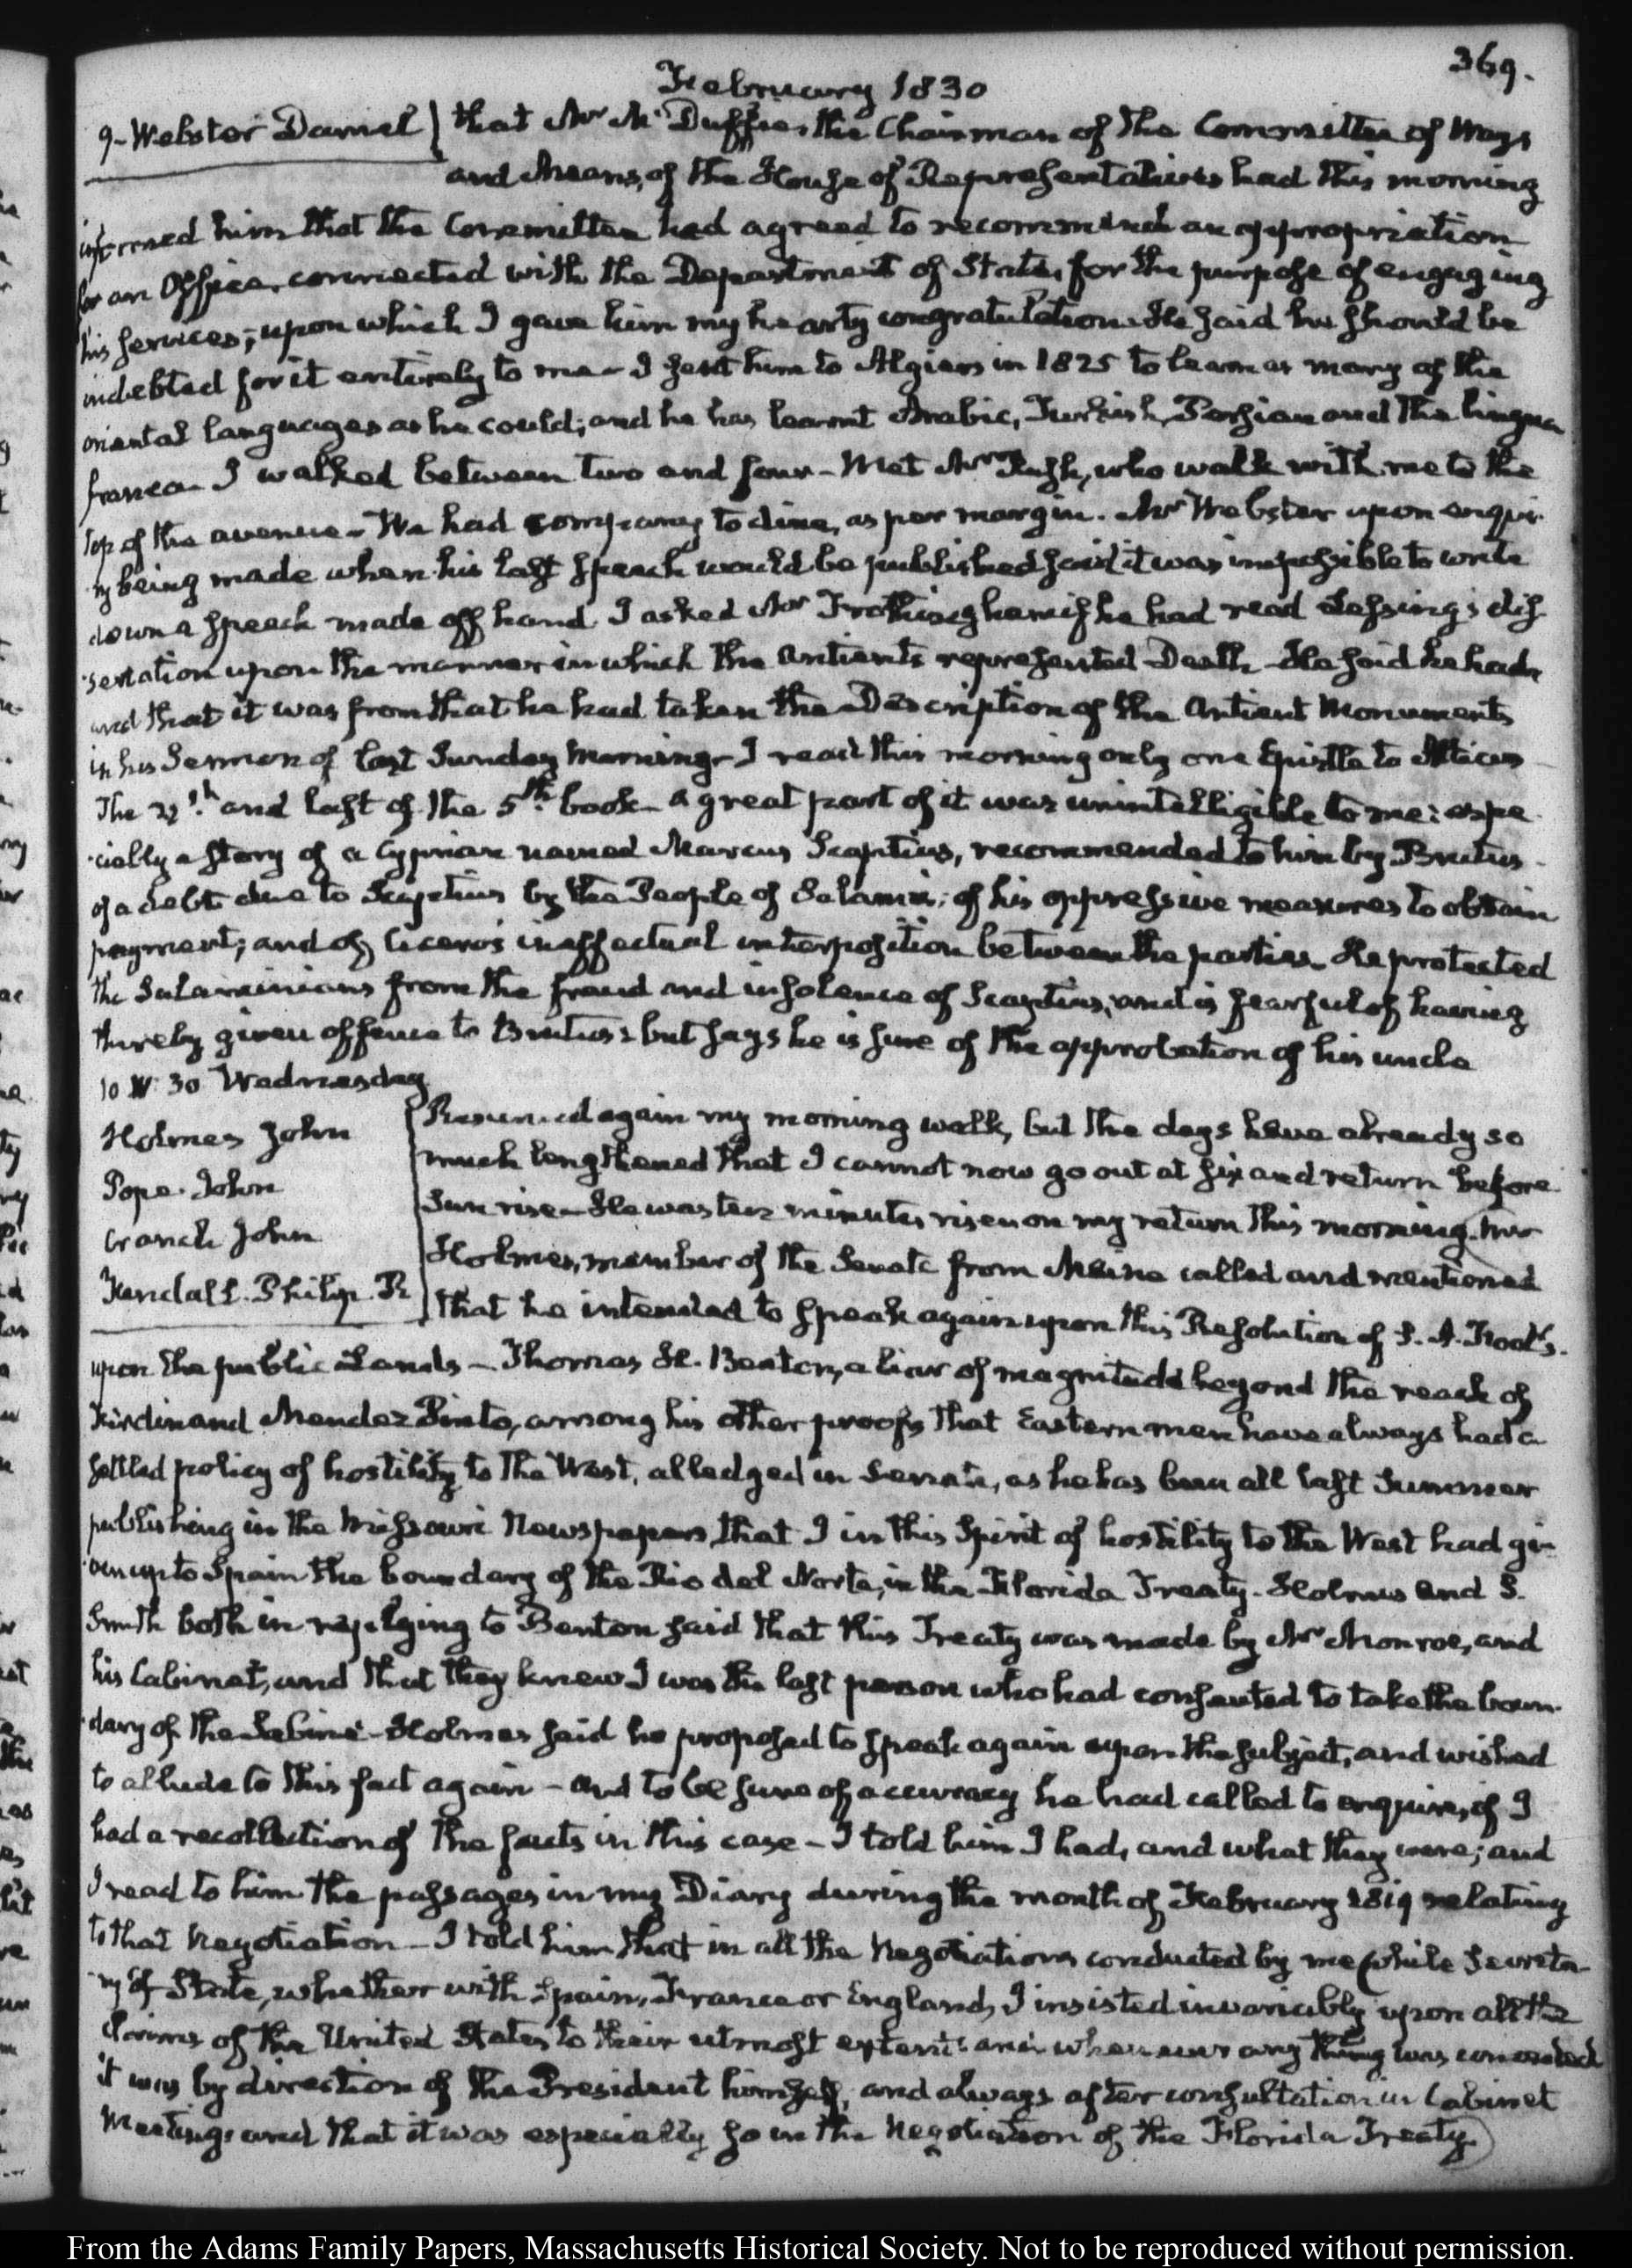 369.
February 1830
9. Webster Daniel
that Mr McDuffie, the Chairman of the Committee of Ways
and Means, of the House of Representatives had this morning
informed him that the Committee had agreed to recommend an appropriation
for an Office, connected with the Department of State, for the purpose of engaging
his services; upon which I gave him my hearty congratulation. He said he should be
indebted for it entirely to me. I sent him to Algiers in 1825 to learn as many of the
oriental languages as he could; and he has learnt Arabic, Turkish, Persian and the lingua
franca. I walked between two and four. Met Mr Rush, who walk with me to the
top of the avenue. We had company to dine, as per margin. Mr Webster upon enqui-
ry being made when his last speech would be published said it was impossible to write
down a speech made off hand. I asked Mr Frothingham if he had read Lessing's dis-
sertation upon the manner in which the antients represented Death. He said he had,
and that it was from that he had taken the Description of the antient Monuments
in his Sermon of last Sunday Morning. I read this morning only one Epistle to Atticus
The 21st and last of the 5th book. A great part of it was unintelligible to me: espe-
cially a story of a Cyprian named Marcus Scaptius, recommended to him by Brutus.
of a debt due to Scaptius by the People of Salamis; of his oppressive measures to obtain
payment; and of Cicero's ineffectual interposition between the parties. He protected
the Salaminians from the fraud and insolence of Scaptius; and is fearful of having
thereby given offence to Brutus: but says he is sure of the approbation of his uncle
10 IV: 30 Wednesday
Holmes John
Pope. John
Cranch John
Fendall. Philip. R
Resumed again my morning walk, but the days have already so
much lengthened that I cannot now go out at six and return before
Sun rise. He was ten minutes risen on my return this morning. Mr
Holmes, member of the Senate from Maine called and mentioned
that he intended to speak again upon this Resolution of S. A. Foot's.
upon the public Lands. Thomas H. Benton, a liar of magnitude beyond the reach of
Ferdinand Mendez Pinto, among his other proofs that Eastern men have always had a
settled policy of hostility to the West, alledged in Senate, as he has been all last Summer
publishing in the Missouri Newspapers, that I in this Spirit of hostility to the West had gi-
ven up to Spain the boundary of the Rio del Norte, in the Florida Treaty. Holmes and S.
Smith both in replying to Benton said that this Treaty was made by Mr Monroe, and
his Cabinet, and that they knew I was the last person who had consented to take the boun-
dary of the Sabine. Holmes said he proposed to speak again upon the subject, and wished
to allude to this fact again - and to be sure of accuracy he had called to enquire, if I
had a recollection of the facts in this case - I told him I had, and what they were; and
I read to him the passages in my Diary during the month of February 1819 relating
to that Negotiation - I told him that in all the Negotiations conducted by me while Secreta-
ry of State, whether with Spain, France or England, I insisted invariably upon all the
claims of the United States to their utmost extent: and whenever any thing was conceded
it was by direction of the President himself, and always after consultation in Cabinet
Meeting: and that it was especially so in the Negotiation of the Florida Treaty.
From the Adams Family Papers, Massachusetts Historical Society. Not to be reproduced without permission.